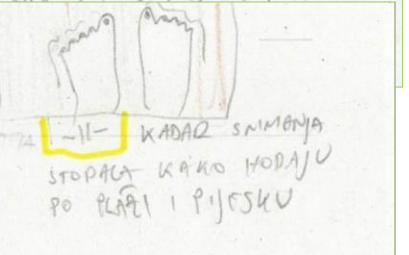 -11- KADAR SNIMANJA
STOPALA KAKO HODAJU
PO PLAŽI I PIJESKU